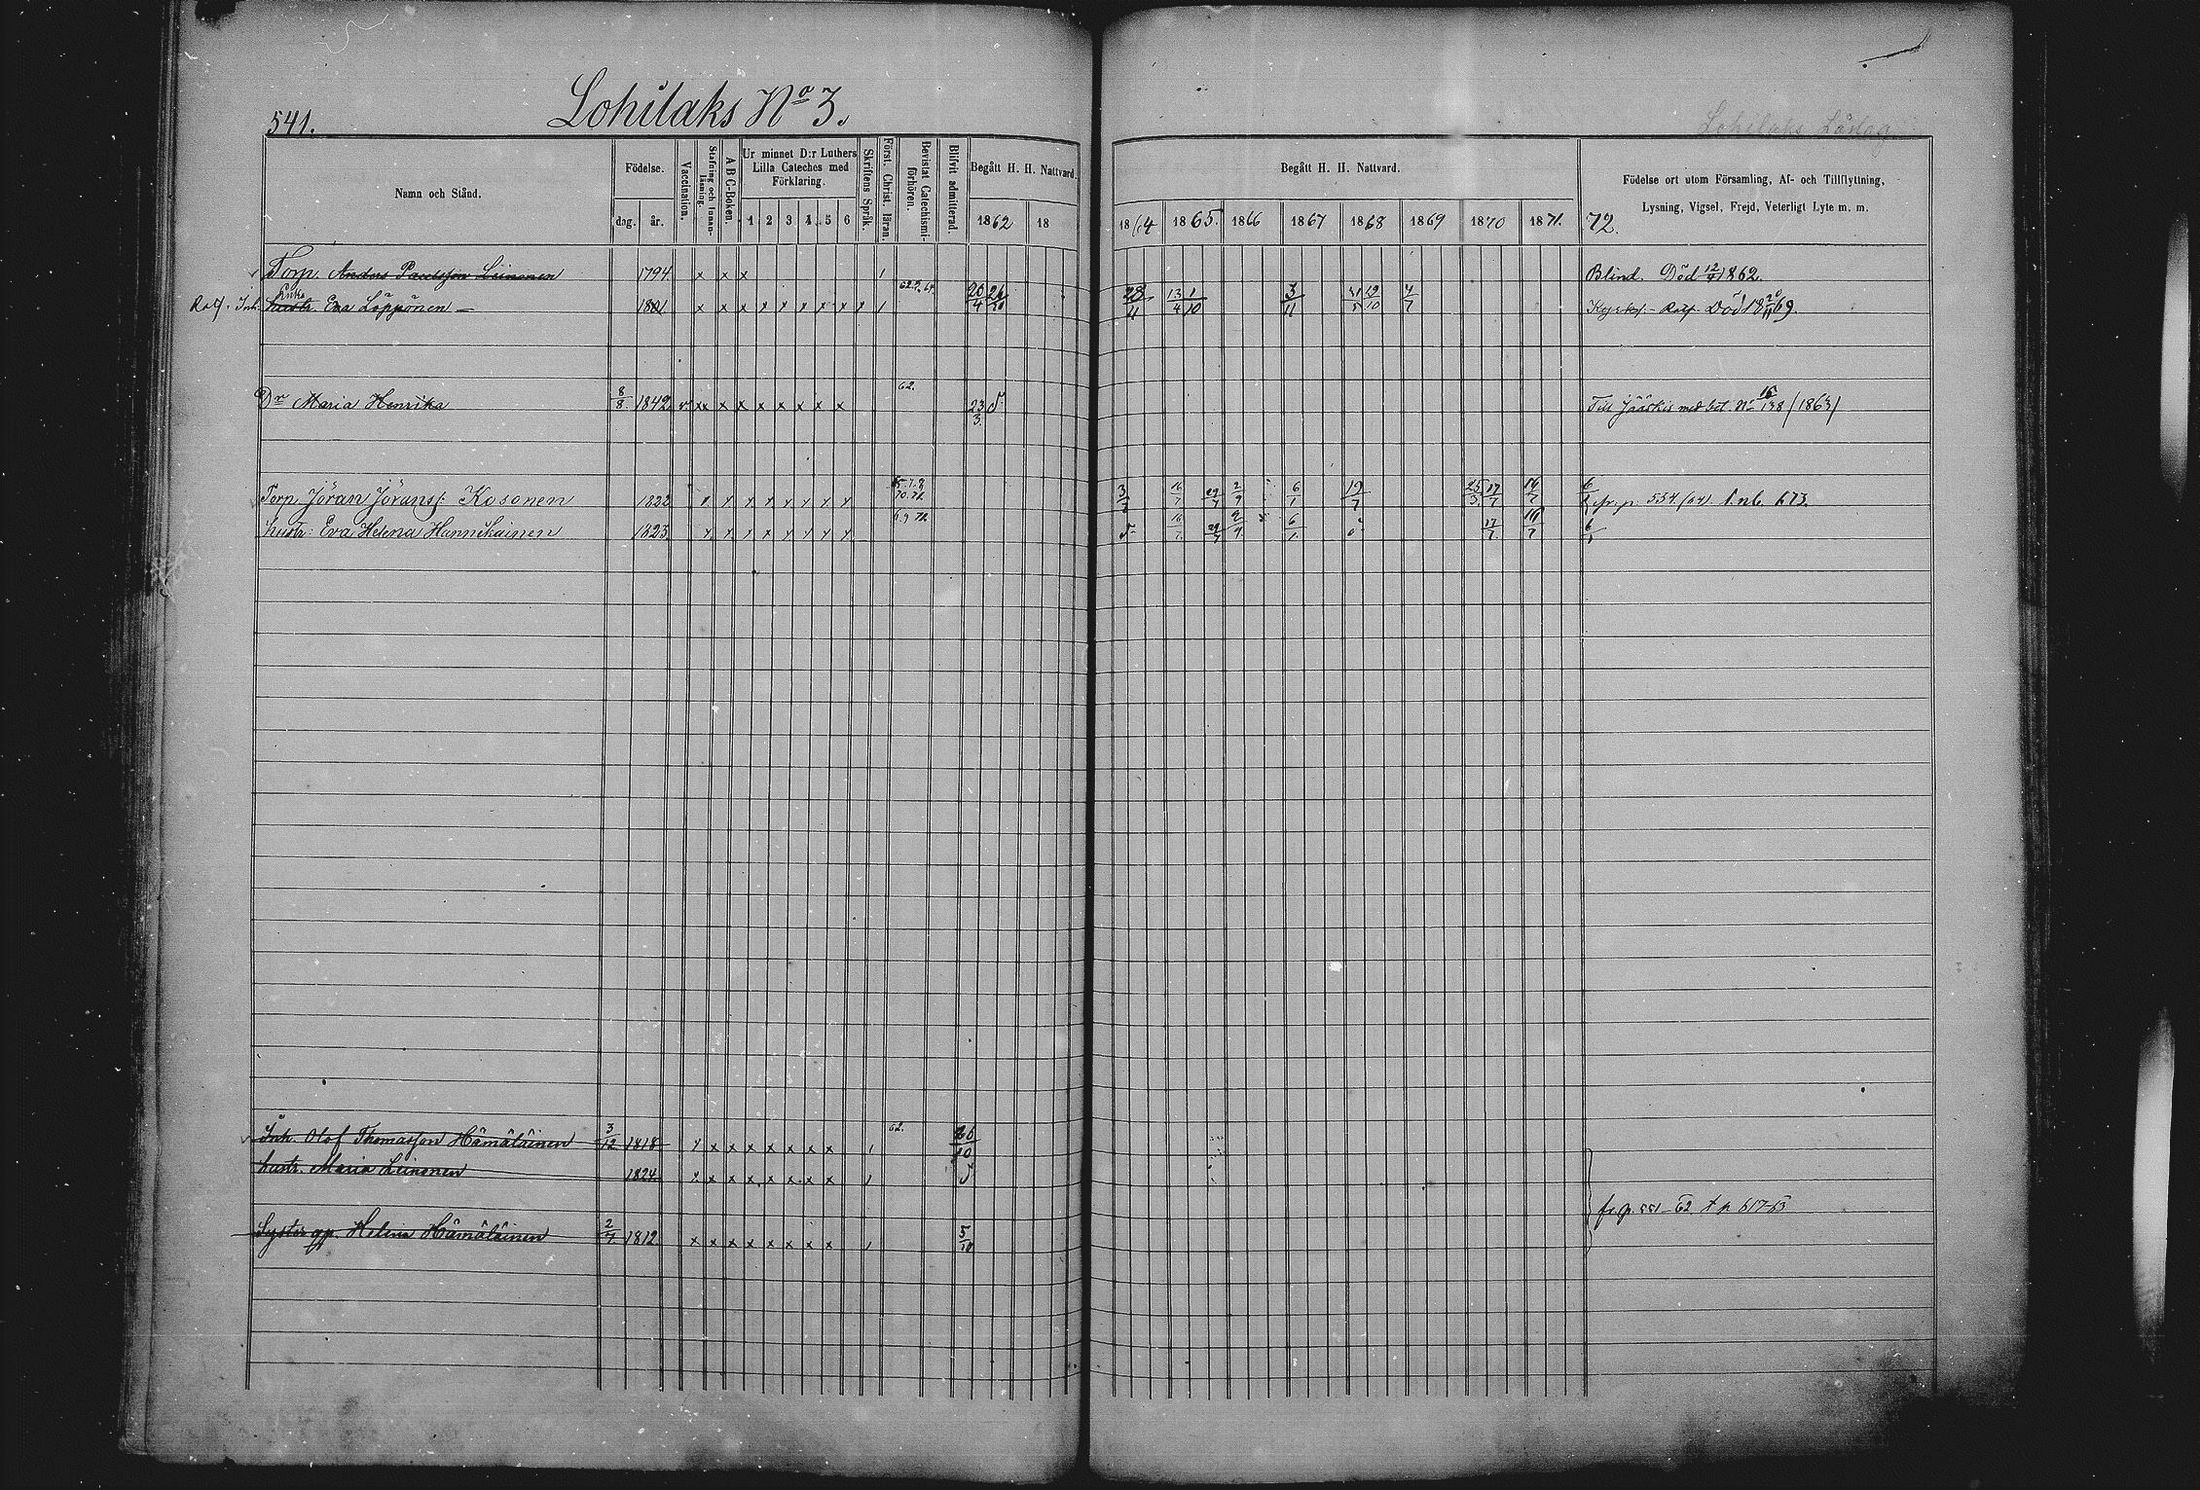 541.
Lohilaks No 3.
Namn och Stånd.
Födelse.
dag. år.
Vaccination.
Stafning och Innanläsning.
A B C-Boken.
Ur minnet D:r Luthers Lilla Cateches med Förklaring.
1 2 3 4 5 6
Skriftens Språk.
Först. Christ. läran.
Bevistat Catechismiförhören.
Blifvit admitterad.
Begått H. H. Nattvard.
1862 18
Begått H. H. Nattvard.
1864 1865. 1866 1867 1868 1869 1870 1871. 72.
Födelse ort utom Församling, Af- och Tillflyttning,
Lysning, Vigsel, Frejd, Veterligt Lyte m. m.
Torp. Anders Paulsson Leinonen 1794 x x x Blind. Död 12/4 1862.
Enka
Inh. hustr. Eva Löppönen 1801 x x x x x x x x x 20/4 26/10 28/11 13/4 1/10 3/11 19/10 4/7 Död 18 20/11 69.
Dr Maria Henrika 8/8 1842 v xx x x x x x x x 62. 23/3 Till Jääskis med bet. No 138 /1863/
Torp. Jöran Jöranss: Kosonen 1822 x x x x x x x x 16/7 29/7 2/9 6/1 19/7 25/3 17/7 16/7 fr. p. 554. (64).
hustr: Eva Helena Hannikainen 1823 x x x x x x x x 69 72 16/7 29/7 2/9 6/1 17/7 16/7
Inh. Olof Thomasson Hämäläinen 3/12 1818 x x x x x x x x 62. 26/10
hustr. Maria Leinonen 1824 x x x x x x x x
fr p. 551-62 t p 617-63
Syster gp. Helena Hämäläinen 2/7 1812 x x x x x x x x 5/10